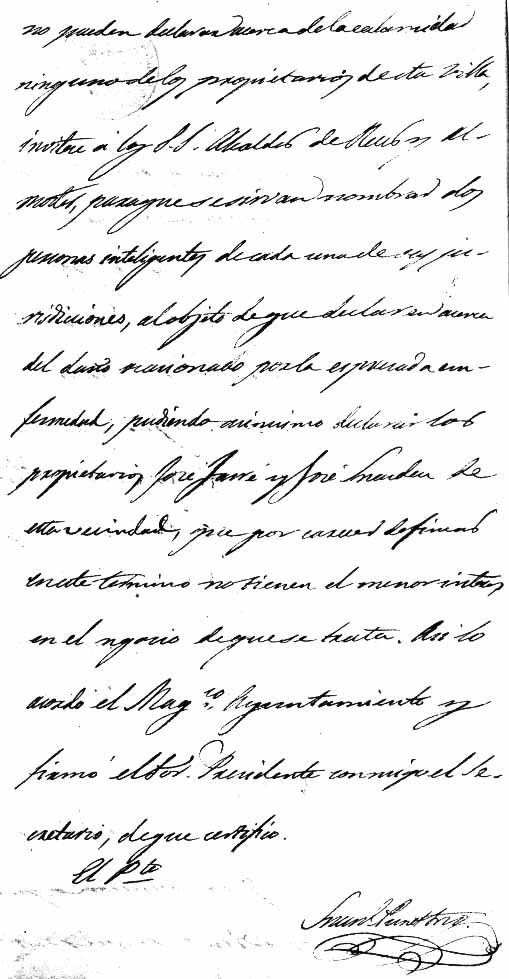 no pueden declarar acerca de la calamidad
ninguno de los propietarios de esta Villa,
invitese á los S.S. Alcaldes de Reus y Al-
moster, para que se sirvan nombrar dos
personas inteligentes de cada una de sus ju-
risdicciones, al objeto de que declaren acerca
del daño ocasionado por la espresada en-
fermedad, pudiendo asimismo declarar los
propietarios José y José de
esta vecindad, que por carecer de fincas
en este termino no tienen el menor interes
en el negocio de que se trata. Asi lo
acordó el Mag.co Ayuntamiento y
firmó el Sor. Presidente conmigo el Se-
cretario, de que certifico.
El Pte